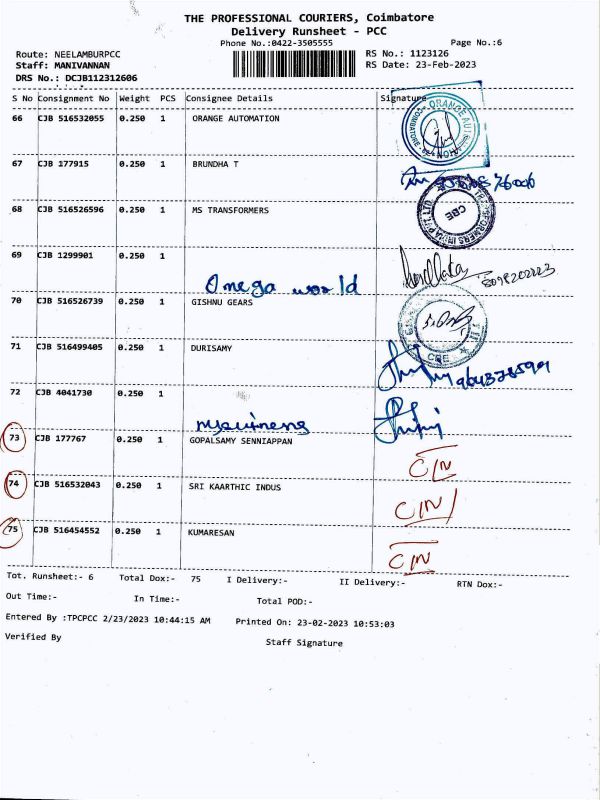 THE PROFESSIONAL COURIERS, Coimbatore
Delivery Runsheet - PCC
Phone No.:0422-3505555 Page No.:6
Route: NEELAMBURPCC RS No.: 1123126
Staff: MANIVANNAN RS Date: 23-Feb-2023
DRS No.: DCJB112312606
S No Consignment No Weight PCS Consignee Details Signature
66 CJB 516532055 0.250 1 ORANGE AUTOMATION
67 CJB 177915 0.250 1 BRUNDHA T
68 CJB 516526596 0.250 1 MS TRANSFORMERS
CBE
69 CJB 1299901 0.250 1
Omega world
70 CJB 516526739 0.250 1 GISHNU GEARS
CBE
71 CJB 516499405 0.250 1 DURISAMY
72 CJB 4041730 0.250 1
73 CJB 177767 0.250 1 GOPALSAMY SENNIAPPAN
CIN
74 CJB 516532043 0.250 1 SRI KAARTHIC INDUS
CIN
75 CJB 516454552 0.250 1 KUMARESAN
CIN
Tot. Runsheet:- 6 Total Dox:- 75 I Delivery:- II Delivery:- RTN Dox:-
Out Time:- In Time:- Total POD:-
Entered By :TPCPCC 2/23/2023 10:44:15 AM Printed On: 23-02-2023 10:53:03
Verified By Staff Signature